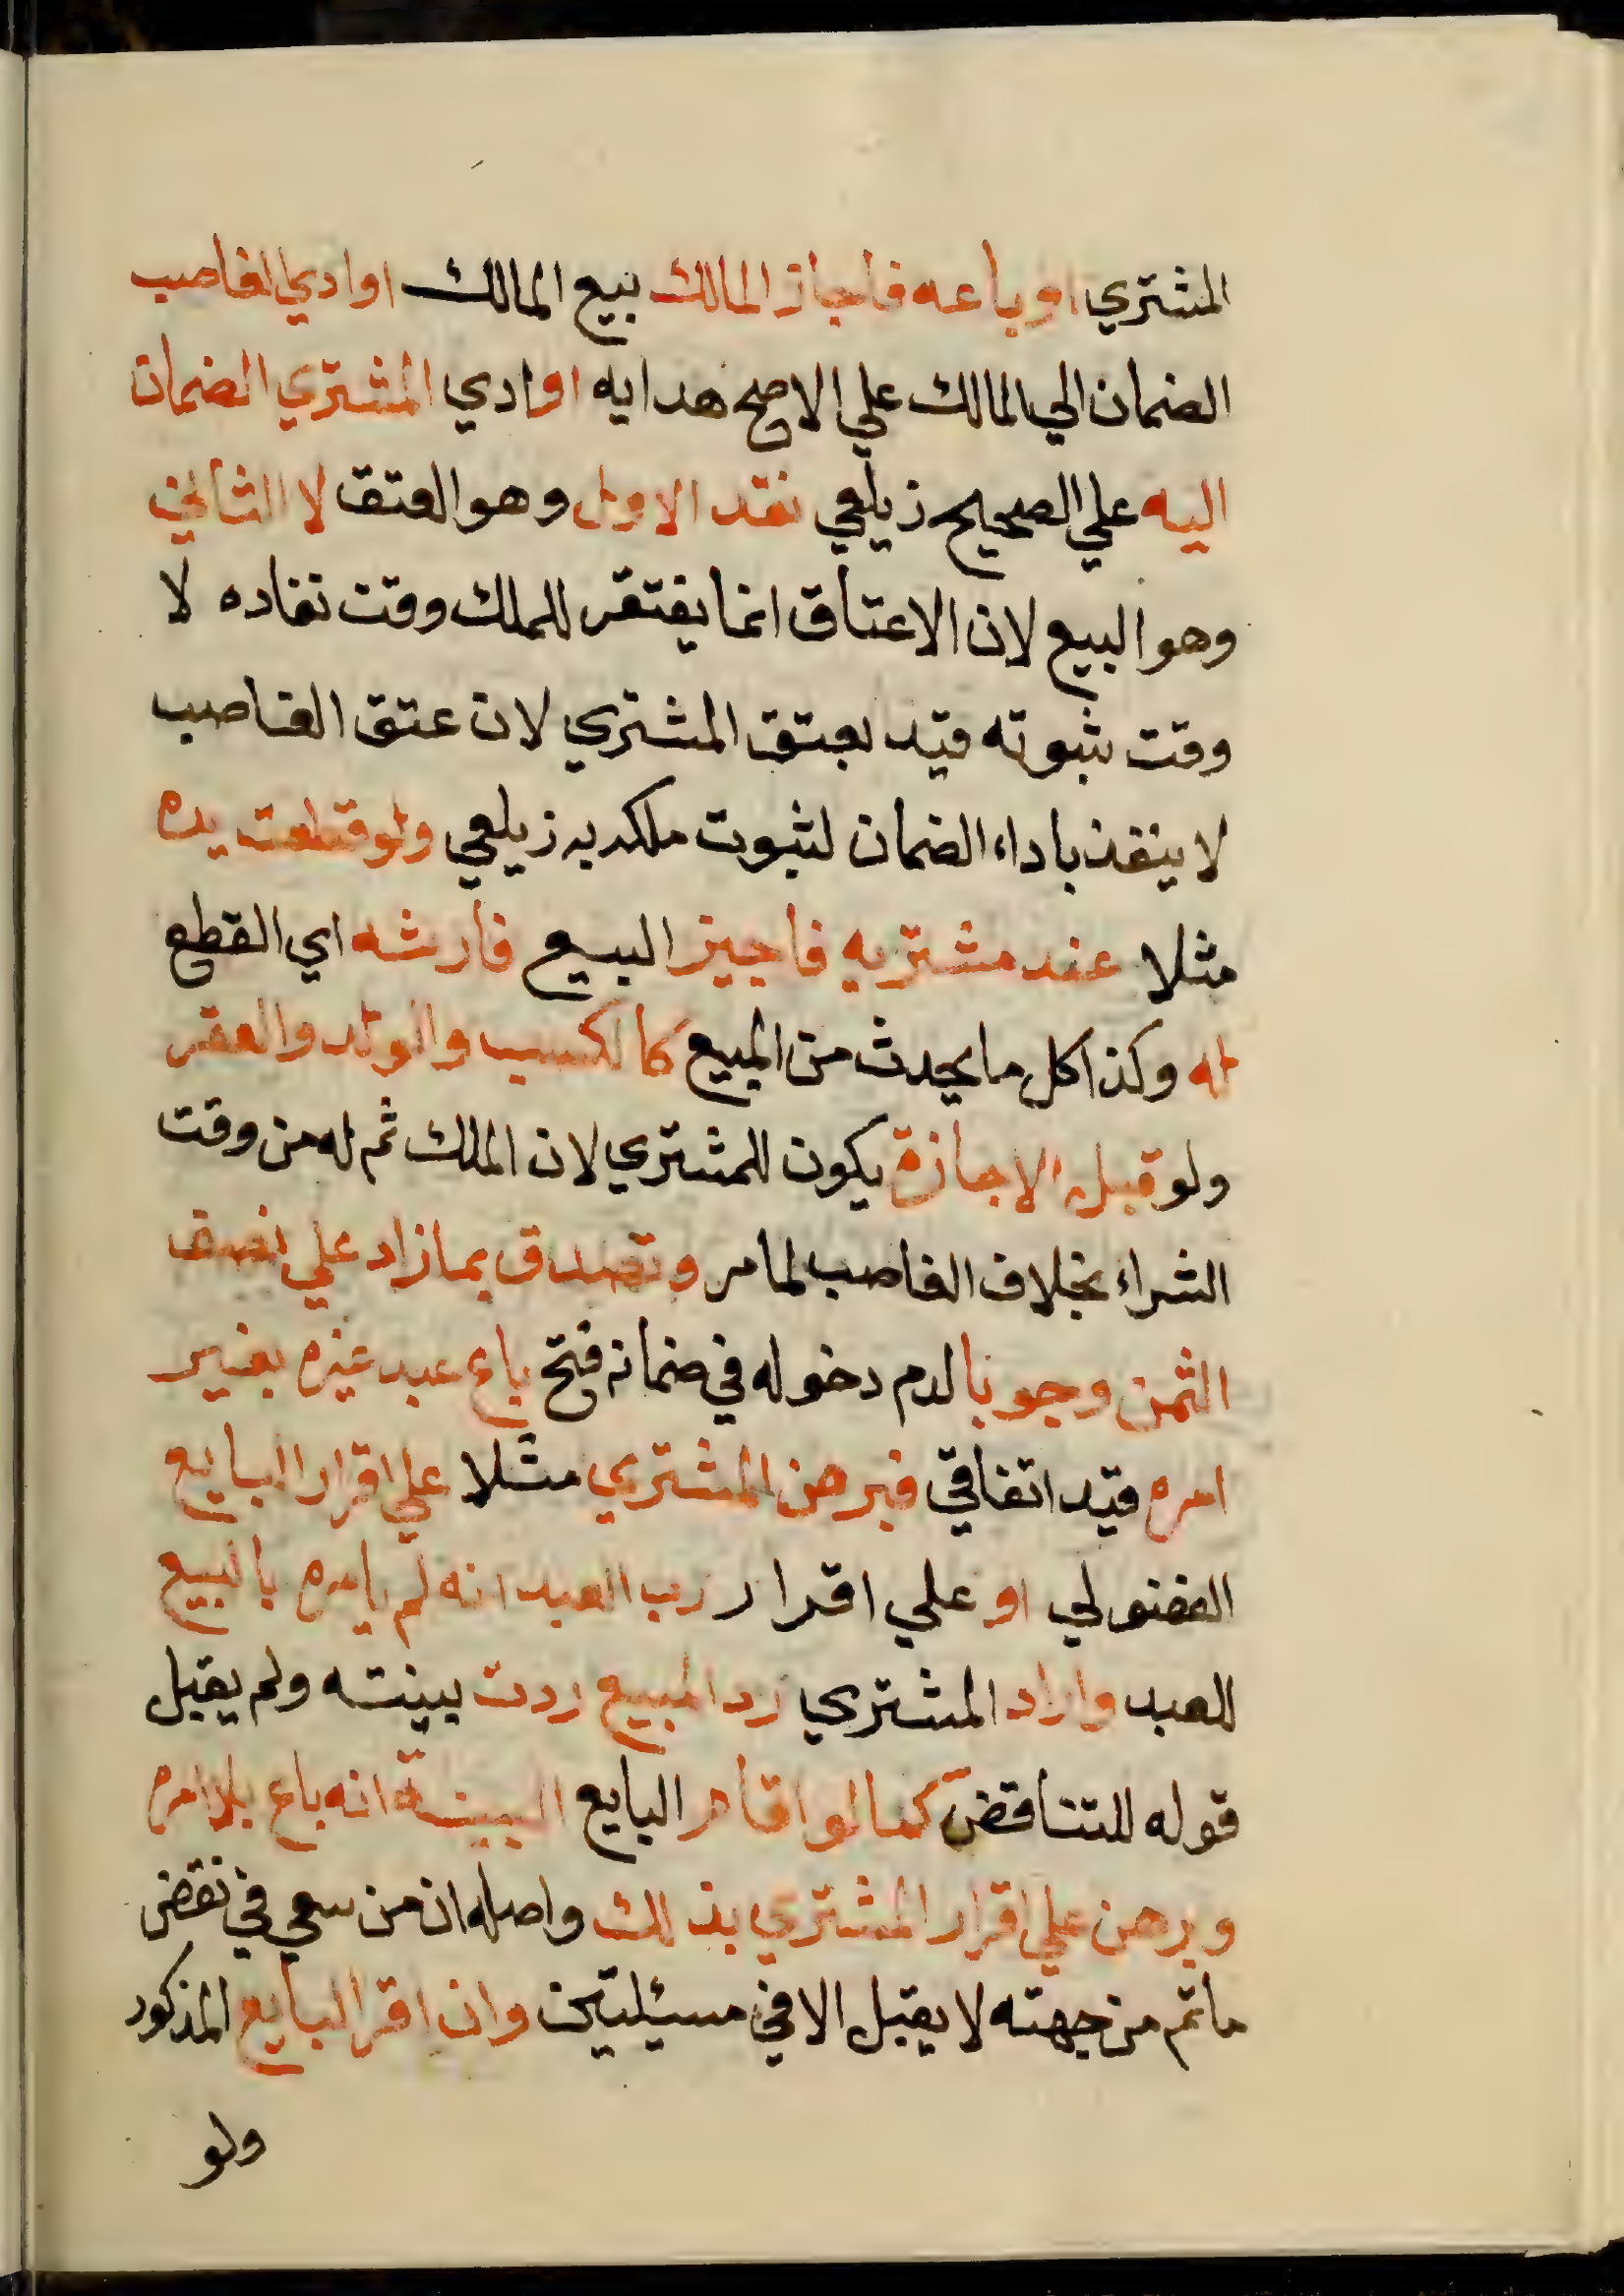 المشتري او باعه فاجاز المالك بيع المالك او ادي الغاصب
الضمان الي المالك علي الاصح هدايه او ادي المشتري الضمان
اليه علي الصحيح زيلعي نقد الاول وهو العتق لا الثاني
وهو البيع لان الاعتاق انما يفتقر للملك وقت نفاده لا
وقت ثبوته قيد بعتق المشتري لان عتق الغاصب
لا ينفذ باداء الضمان لثبوت ملكه به زيلعي ولو قطعت يده
مثلا عند مشتريه فاجيز البيع فارشه اي القطع
له وكذا كل ما يحدث من المبيع كالكسب والولد والعقر
ولو قبل الاجازة يكون للمشتري لان الملك ثم له من وقت
الشراء بخلاف الغاصب لما مر وتصدق بما زاد علي نصف
الثمن وجوبا لدم دخوله في ضمانه فتح باع عبد غيره بغير
امره قيد اتفاقي فبرهن المشتري مثلا علي اقرار البايع
الفضولي او علي اقرار رب العبد انه لم يامره بالبيع
للعبد واراد المشتري رد المبيع ردت بينته ولم يقبل
قوله للتناقض كما لو اقام البايع البينة انه باع بلا امره
وبرهن علي اقرار المشتري بذلك واصله ان من سعي في نقض
ماتم من جهته لا يقبل الا في مسيئلتين وان اقر البايع المذكور
ولو